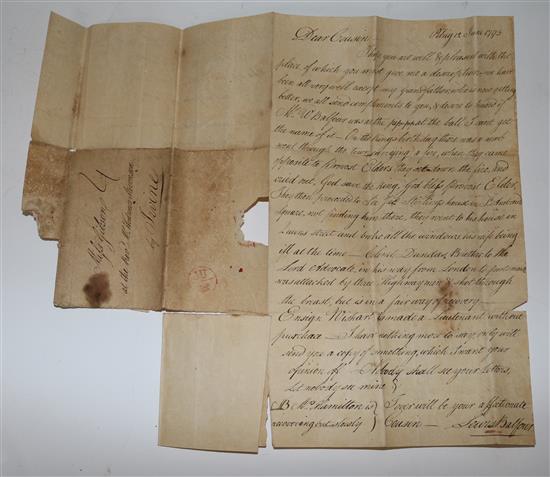 Dear Cousin
Pilrig 12 June 1793
I hope you are well & pleased with the
place of which you must give me a description we have
been all very well except my Grandfather who is now getting
better, we all send compliments to you, & desire to know if
Mr W Balfour was at the at the ball I cant get
the name of it — On the Kings birthday there was a mob
went through the town carrying a fire, when they came
opposite to Provost Elders they set down the fire, and
cried out, God save the King, God bless Provost Elder,
They then proceeded to Sir Jas Stirlings house in St Andrews
Square, not finding him there, they went to his house in
Queens street and broke all the windows his wife being
ill at the time — Colonel Dundas, Brother to the
Lord Advocate in his way from London to Portsmouth
was attacked by three Highwaymen & shot through
the breast, but is in a fair way of recovery —
Ensign Wishart is made a Lieutenant without
purchase I have nothing more to say, only will
send you a copy of something, which I want your
opinion of Nobody shall see your letters,
let nobody see mine
NB Mrs Hamilton is
recovering but slowly
I ever will be your affectionate
Cousin — Lewis Balfour
Miss Wilson
at the Revd
by Fovrie